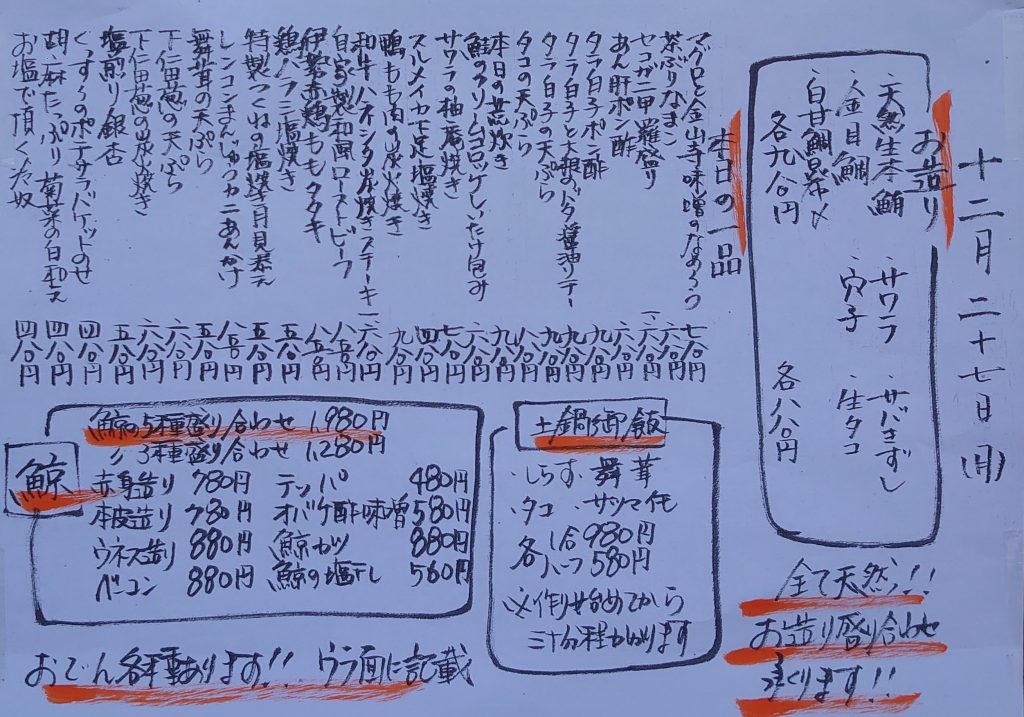 十二月二十七日(月)
お造り
・天然生本鮪 ・サワラ ・サバきずし
・金目鯛 ・穴子 ・生タコ
・白甘鯛昆布〆
各九八〇円 各八八〇円
全て天然!!
お造り盛り合わせ
つくります!!
本日の一品
マグロと金山寺味噌のなめろう 七八〇円
茶ぶりなまこ 六八〇円
セコガニ甲羅盛り
あん肝ポン酢
タラ白子ポン酢
タラ白子と大根のバタ醤油ソテー
タラ白子の天ぷら
タコの天ぷら
本日の煮炊き
鮭のクリームコロッケしいたけ包み
サワラの柚庵焼き
スルメイカ下足塩焼き
鴨もも肉の炭火焼き
和牛ハネシタ炭焼きステーキ 一六八〇円
自家製和風ローストビーフ 八八〇円
伊勢赤鶏ももタタキ
鶏ハラミ塩焼き
特製つくねの塩焼き月見添え
レンコンまんじゅうカニあんかけ
舞茸の天ぷら
下仁田葱の天ぷら 六八〇円
下仁田葱の炭火焼き
塩煎り銀杏
ぐっすくのポテサラバケットのせ 四八〇円
胡麻たっぷり菊菜の白和え 四八〇円
お塩で頂く冷奴 四八〇円
土鍋御飯
・しらす・舞茸
・タコ・サツマイモ
各1合980円
ハーフ580円
※作り始めてから
三十分程かかります
鯨
鯨の5種盛り合わせ 1,980円
〃3種盛り合わせ 1,280円
赤身造り 780円 テッパ 480円
本皮造り 780円 オバケ酢味噌 580円
ウネス造り 880円 鯨カツ 880円
ベーコン 880円 鯨の塩干し 560円
おでん各種あります!! ウラ面に記載